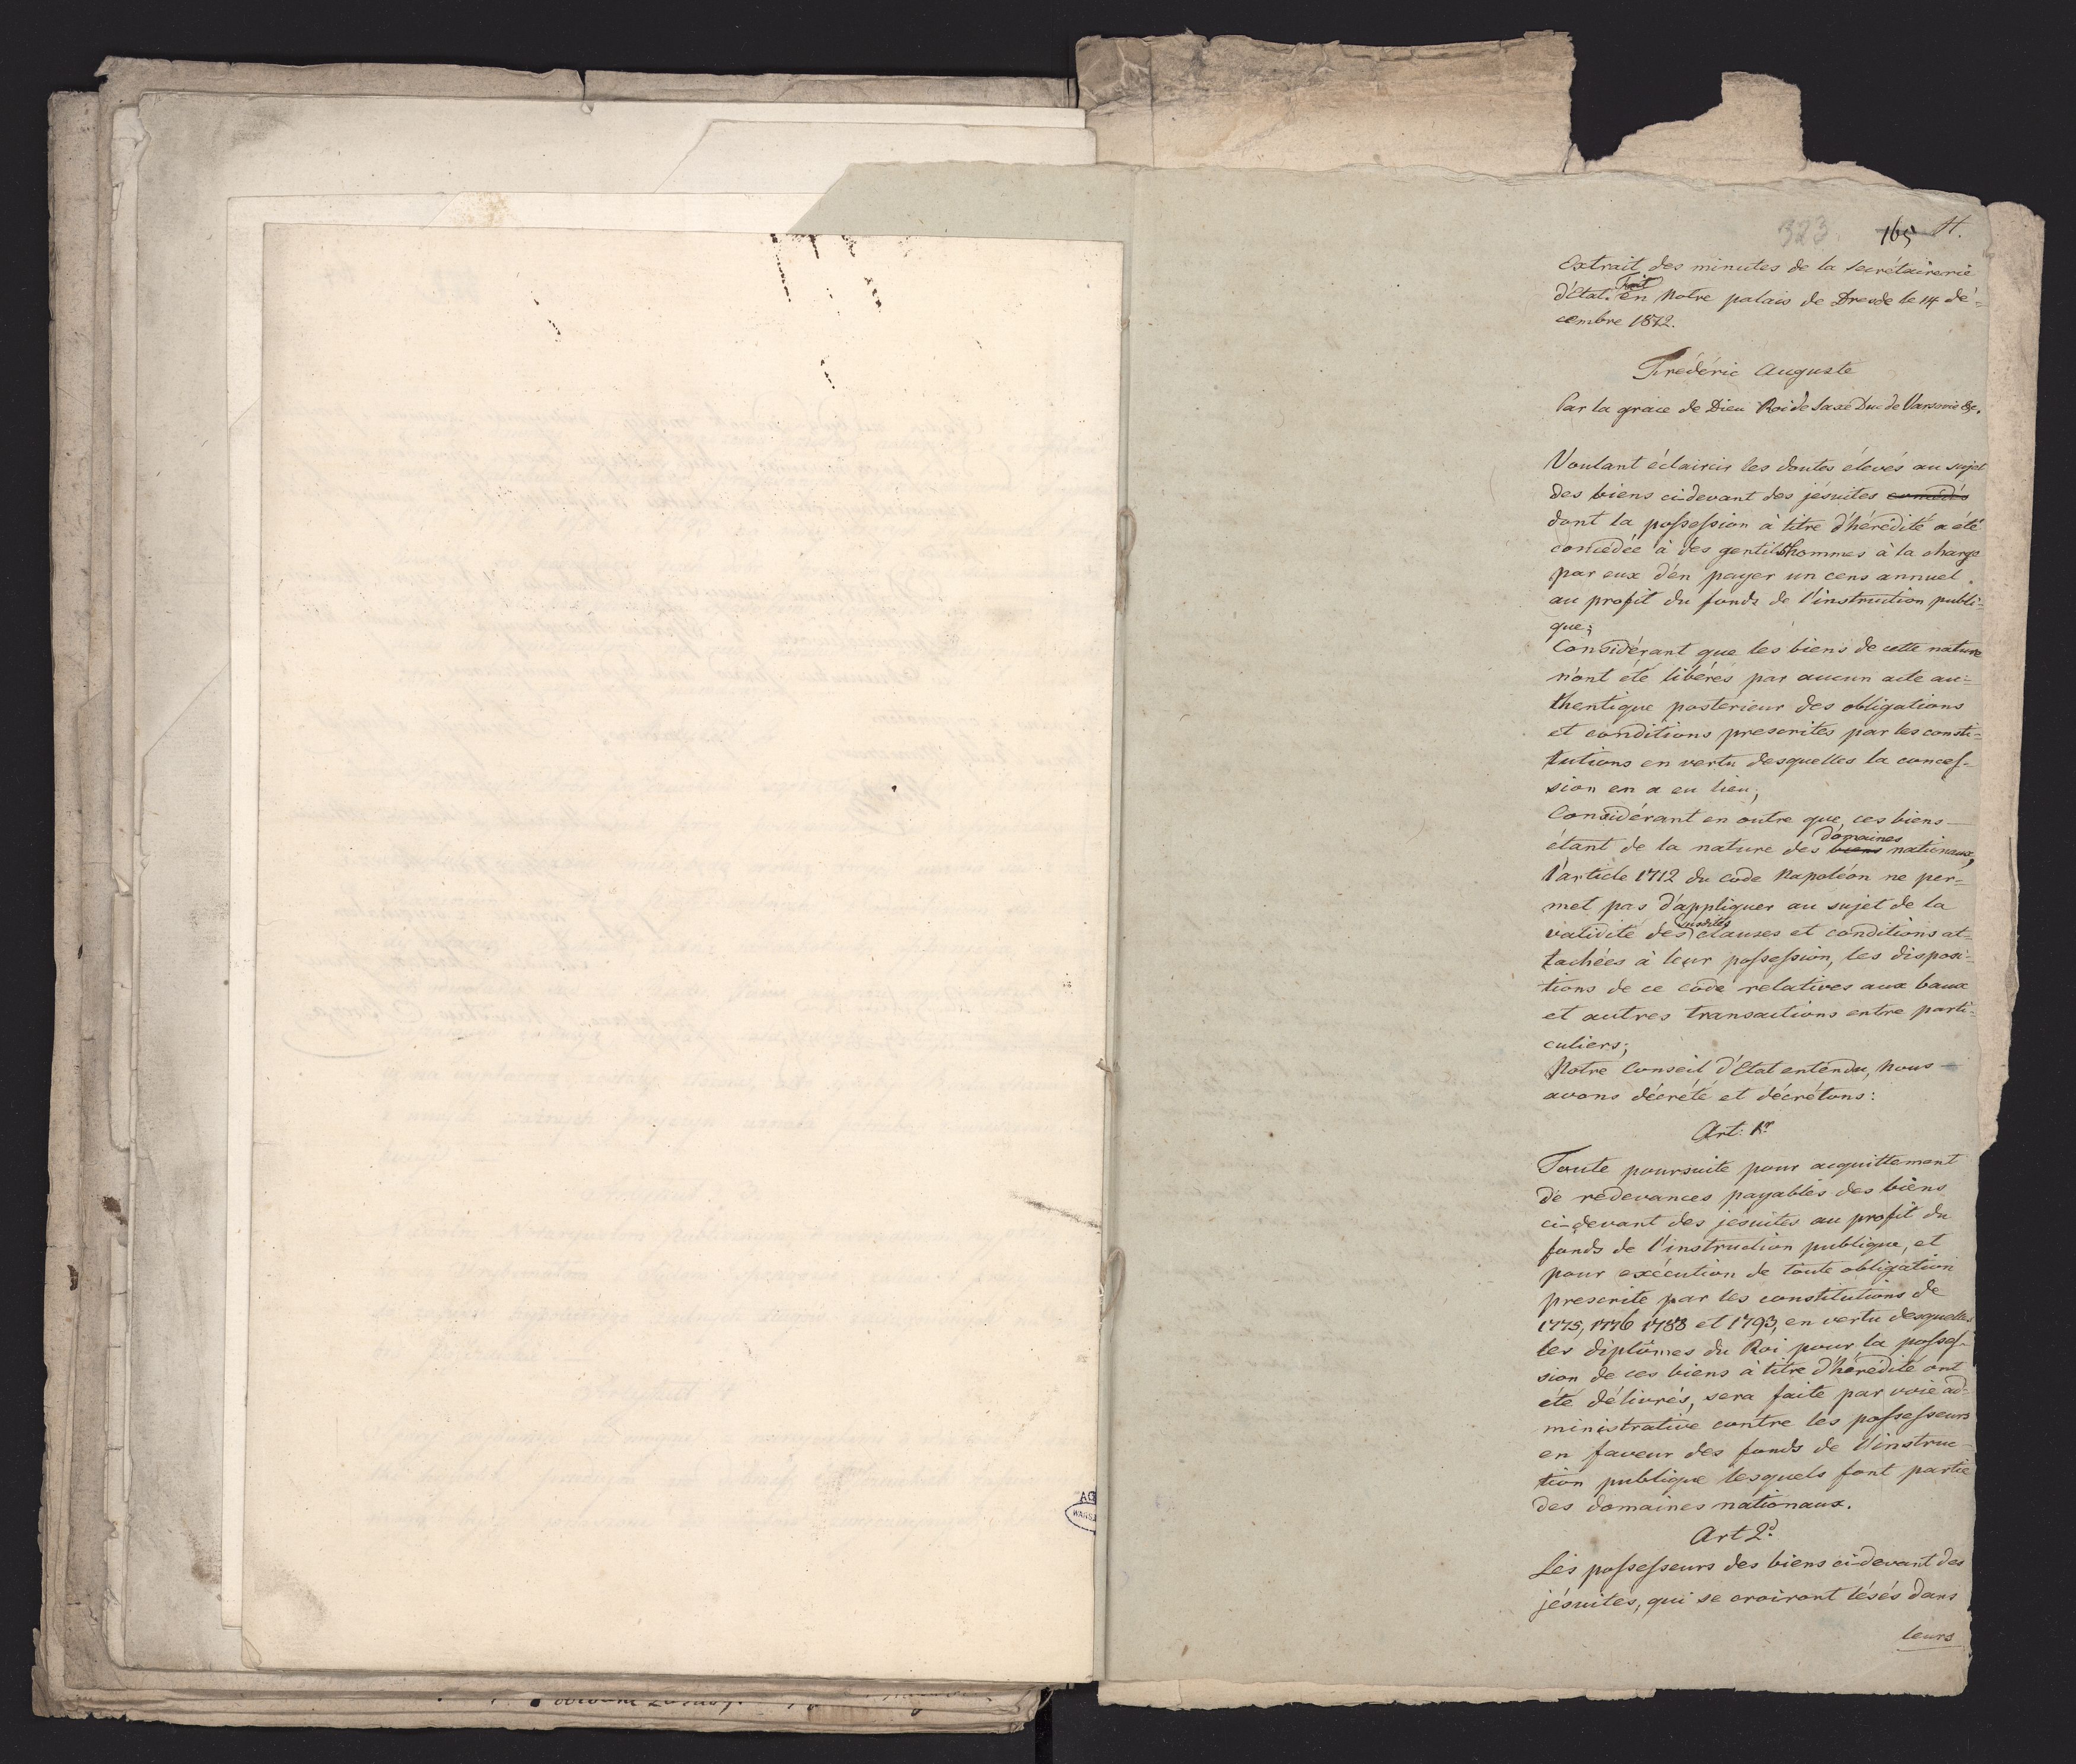 323. 165 H.
Extrait des minutes de la Secrétairerie
d'Etat. Fait en Notre palais de Dresde le 14 dé=
cembre 1812.
Frédéric Auguste
Par la grace de Dieu Roi de Saxe Duc de Varsovie &c.
Voulant éclaircir les doutes élevés au sujet
des biens ci-devant des jésuites
dont la possession à titre d'hérédité a été
concédée à des gentilshommes à la charge
par eux d'en payer un cens annuel
au profit du fonds de l'instruction publi=
que;
Considérant que les biens de cette nature
n'ont été libérés par aucun acte au=
thentique postérieur des obligations
et conditions prescrites par les consti=
tutions en vertu desquelles la conces=
sion en a eu lieu;
Considérant en outre que ces biens
étant de la nature des biens domaines nationaux,
l'article 1712 du Code Napoléon ne per=
met pas d'appliquer au sujet de la
validité des susdites clauses et conditions at=
tachées à leur possession, les disposi=
tions de ce code relatives aux baux
et autres transactions entre parti=
culiers;
Notre Conseil d'Etat entendu, Nous
avons décrété et décrétons:
Art: 1r
Toute poursuite pour acquittement
de redevances payables des biens
ci-devant des jesuites au profit du
fonds de l'instruction publique, et
pour exécution de toute obligation
prescrite par les constitutions de
1775, 1776 1788 et 1793, en vertu desquelles
les diplômes du Roi pour la posses=
sion de ces biens à titre d'hérédité ont
été délivrés, sera faite par voie ad=
ministrative contre les possesseurs
en faveur des fonds de l'instruc=
tion publique lesquels font partie
des domaines nationaux.
Art 2d
Les possesseurs des biens ci-devant des
jésuites, qui se croiront lésés dans
leurs